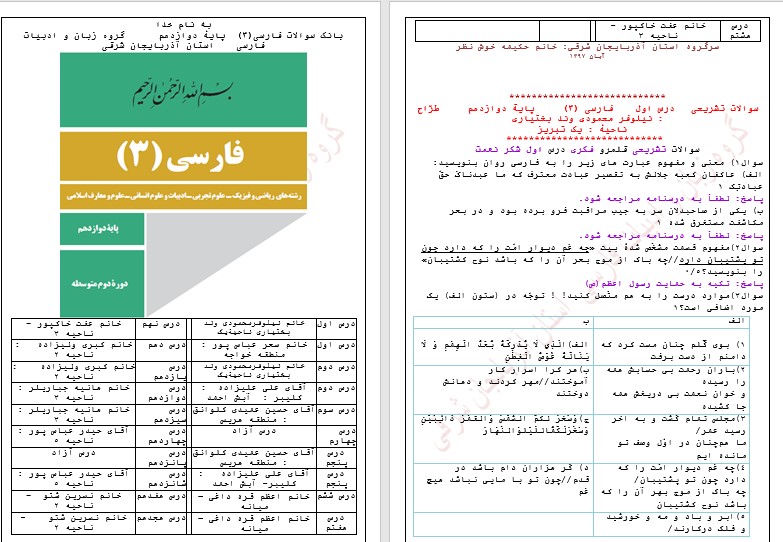 به نام خدا
بانک سوالات فارسی(۳) پایهٔ دوازدهم گروه زبان و ادبیات
فارسی استان آذربایجان شرقی
بسم الله الرحمن الرحیم
فارسی (۳)
رشته‌های ریاضی و فیزیک ـ علوم تجربی ـ ادبیات و علوم انسانی ـ علوم و معارف اسلامی
پایهٔ دوازدهم
دورهٔ دوم متوسطه
درس اول خانم نیلوفرمحمودی وند بختیاری ناحیه‌یک درس نهم خانم عفت خاکپور – ناحیه ۳
درس اول خانم سحر عباس پور : منطقه خواجه درس دهم خانم کبری ولیزاده : ناحیه ۲
درس دوم خانم نیلوفرمحمودی وند بختیاری ناحیه‌یک درس یازدهم خانم کبری ولیزاده : ناحیه ۲
درس دوم آقای علی علیزاده : کلیبر – آبش احمد درس دوازدهم خانم هانیه جباریلر : ناحیه ۳
درس سوم آقای حسین عمیدی کلوانق : منطقه هریس درس سیزدهم خانم هانیه جباریلر : ناحیه ۳
درس چهارم درس آزاد درس چهاردهم آقای حیدر عباس پور : ناحیه ۵
درس پنجم آقای حسین عمیدی کلوانق : منطقه هریس درس پانزدهم درس آزاد
درس پنجم آقای علی علیزاده : کلیبر- آبش احمد درس شانزدهم آقای حیدر عباس پور : ناحیه ۵
درس ششم خانم اعظم قره داغی – میانه درس هفدهم خانم نسرین شتو – ناحیه ۲
درس هفتم خانم اعظم قره داغی – میانه درس هجدهم خانم نسرین شتو – ناحیه ۲
درس هشتم خانم عفت خاکپور – ناحیه ۳
سرگروه استان آذربایجان شرقی: خانم حکیمه خوش نظر
آبان ۱۳۹۷
****************************
سوالات تشریعی درس اول فارسی (۳) پایهٔ دوازدهم طرّاح
: نیلوفر محمودی وند بختیاری
ناحیهٔ : یک تبریز
****************************
سوالات تشریحی قلمرو فکری درس اول شکر نعمت
سوال۱) معنی و مفهوم عبارت های زیر را به فارسی روان بنویسید:
الف) عاکفان کعبه جلالش به تقصیر عبادت معترف که ما عبدناک حقّ
عبادتک ۱
پاسخ: لطفاً به درسنامه مراجعه شود.
ب) یکی از صاحبدلان سر به جیب مراقبت فرو برده بود و در بحر
مکاشفت مستغرق شده ۱
پاسخ: لطفاً به درسنامه مراجعه شود.
سوال۲)مفهوم قسمت مشخّص شدهٔ بیت «چه غم دیوار امّت را که دارد چون
تو پشتیبان دارد//چه باک از موج بحر آن را که باشد نوح کشتیبان»
را بنویسید؟۰/۵
پاسخ: تکیه به حمایت رسول اعظم (ص)
سوال۳)موارد درست را به هم متّصل کنید! ! توجّه در (ستون الف) یک
مورد اضافی است؟۱
الف ب
۱) بوی گُلم چنان مست کرد که
دامنم از دست برفت
الف)الَّذی لَا یُدْرِکُهُ بُعْدُ الْهِمَمِ وَ لَا
یَنَالُهُ غَوْصُ الْفِطَنِ
۲)باران رحمت بی حسابش همه
را رسیده
و خوان نعمت بی دریغش همه
جا کشیده
ب)هر کرا اسرار کار
آموختند//مهر کردند و دهانش
دوختند
۳)مجلس تمام گشت و به آخر
رسید عمر/
ما همچنان در اوّل وصف تو
مانده ایم
ج)وَسَخَّرَ لَکُمُ الشَّمْسَ وَالْقَمَرَ دَائِبَیْنِ
وَسَخَّرَ لَکُمُ اللَّیْلَ وَالنَّهَارَ
۴)چه غم دیوار امّت را که
دارد چون تو پشتیبان/
چه باک از موج بهر آن را که
باشد نوح کشتیبان
د) گر هزاران دام باشد در
قدم//چون تو با مایی نباشد هیچ
غم
۵)ابر و باد و مه و خورشید
و فلک درکارند/